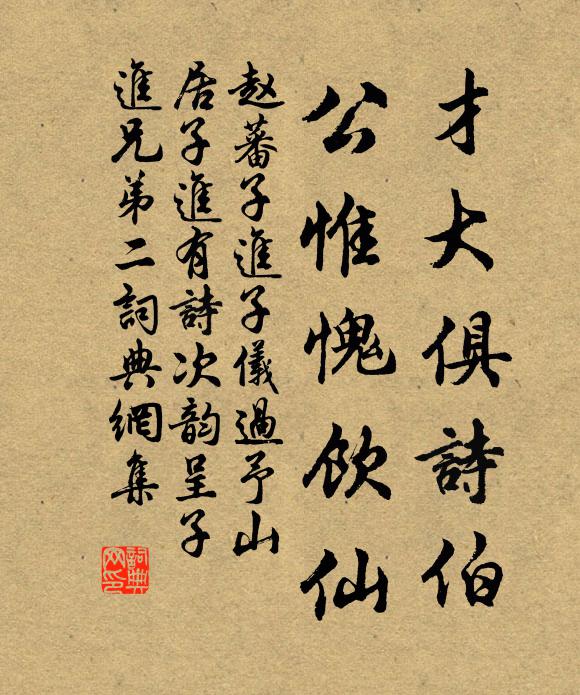 才大俱詩伯
公惟愧飲仙
赵蕃子進子儀過予山
居子進有詩次韵呈子
進兄弟二詞典網集
詞典网印